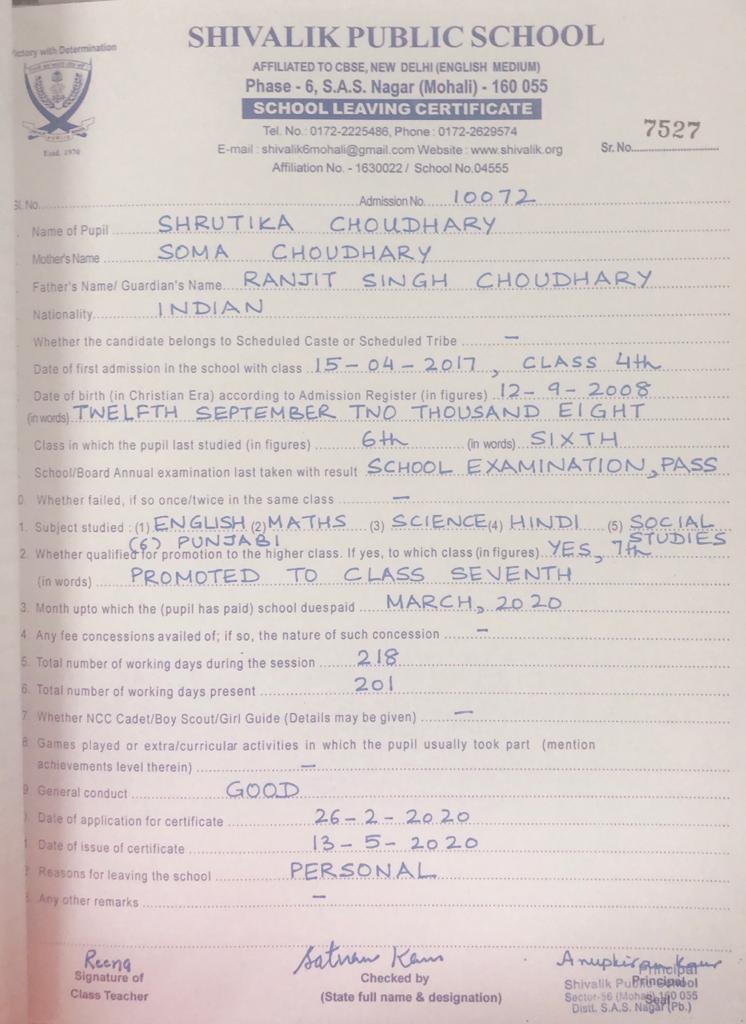 Victory with Determination
Estd. 1970
SHIVALIK PUBLIC SCHOOL
AFFILIATED TO CBSE, NEW DELHI (ENGLISH MEDIUM)
Phase - 6, S.A.S. Nagar (Mohali) - 160 055
SCHOOL LEAVING CERTIFICATE
Tel. No.: 0172-2225486, Phone : 0172-2629574
E-mail : shivalik6mohali@gmail.com Website : www.shivalik.org
Affiliation No. - 1630022 / School No.04555
Sr. No. 7527
Sl. No. Admission No. 10072
Name of Pupil SHRUTIKA CHOUDHARY
Mother's Name SOMA CHOUDHARY
Father's Name/ Guardian's Name RANJIT SINGH CHOUDHARY
Nationality INDIAN
Whether the candidate belongs to Scheduled Caste or Scheduled Tribe —
Date of first admission in the school with class 15-04-2017, CLASS 4th
Date of birth (in Christian Era) according to Admission Register (in figures) 12-9-2008
(in words) TWELFTH SEPTEMBER TNO THOUSAND EIGHT
Class in which the pupil last studied (in figures) 6th (in words) SIXTH
School/Board Annual examination last taken with result SCHOOL EXAMINATION, PASS
0. Whether failed, if so once/twice in the same class —
1. Subject studied : (1) ENGLISH (2) MATHS (3) SCIENCE (4) HINDI (5) SOCIAL STUDIES
(6) PUNJABI
2. Whether qualified for promotion to the higher class. If yes, to which class (in figures) YES, 7th
(in words) PROMOTED TO CLASS SEVENTH
3. Month upto which the (pupil has paid) school duespaid MARCH, 2020
4. Any fee concessions availed of; if so, the nature of such concession —
5. Total number of working days during the session 218
6. Total number of working days present 201
7. Whether NCC Cadet/Boy Scout/Girl Guide (Details may be given) —
8. Games played or extra/curricular activities in which the pupil usually took part (mention
achievements level therein) —
9. General conduct GOOD
Date of application for certificate 26-2-2020
Date of issue of certificate 13-5-2020
Reasons for leaving the school PERSONAL
Any other remarks —
Reena
Signature of
Class Teacher
Satnam Kaur
Checked by
(State full name & designation)
Anupkiran Kaur
Principal
Principal
Shivalik Public School
Sector-56 (Mohali) 160 055
Seal
Distt. S.A.S. Nagar (Pb.)